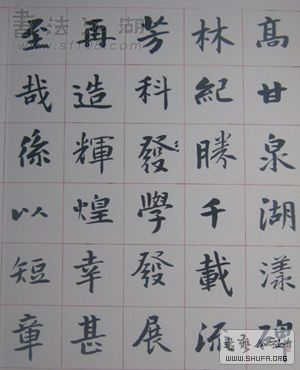 高甘泉湖漾碑
林紀勝千載流
芳科發學發展
再造輝煌幸甚
至哉係以短章
書法江湖
www.sf108.com
WWW.SHUFA.ORG